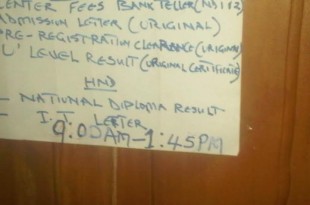 CENTER FEES BANK TELLER (
ADMISSION LETTER (ORIGINAL)
PRE-REGISTRATION CLEARANCE (ORIGINAL
O' LEVEL RESULT (ORIGINAL CERTIFICATE
HND
- NATIONAL DIPLOMA RESULT
- I.T. LETTER
9:00AM-1:45PM